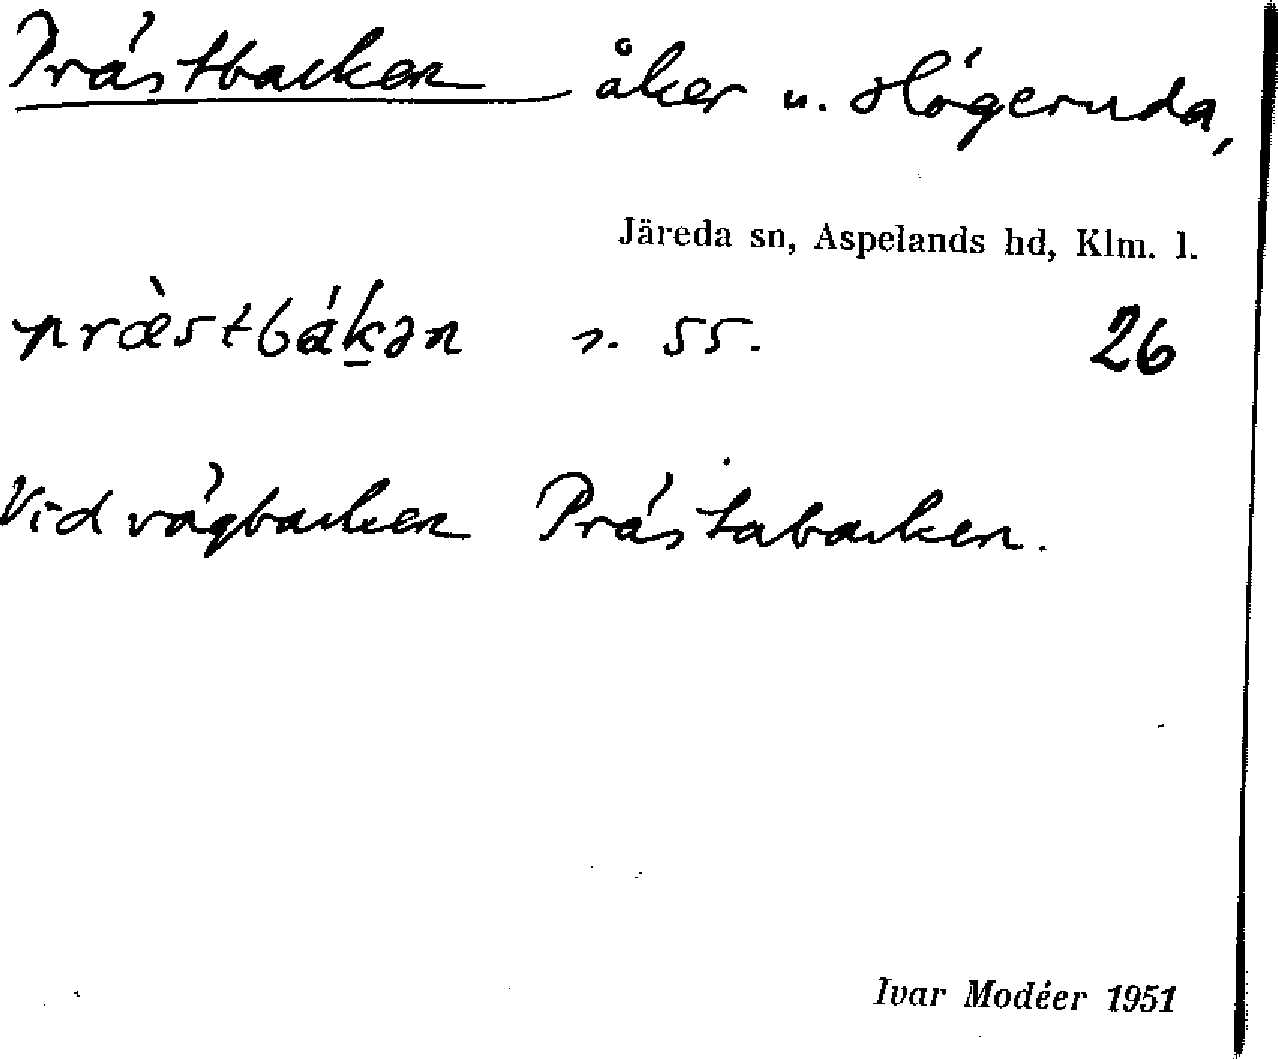 Prästbacken åker u. Högeruda,
Järeda sn, Aspelands hd, Klm. l.
præ̀stbák̲ən s. 55. 26
Vid vägbacken Prästabacken.
Ivar Modéer 1951